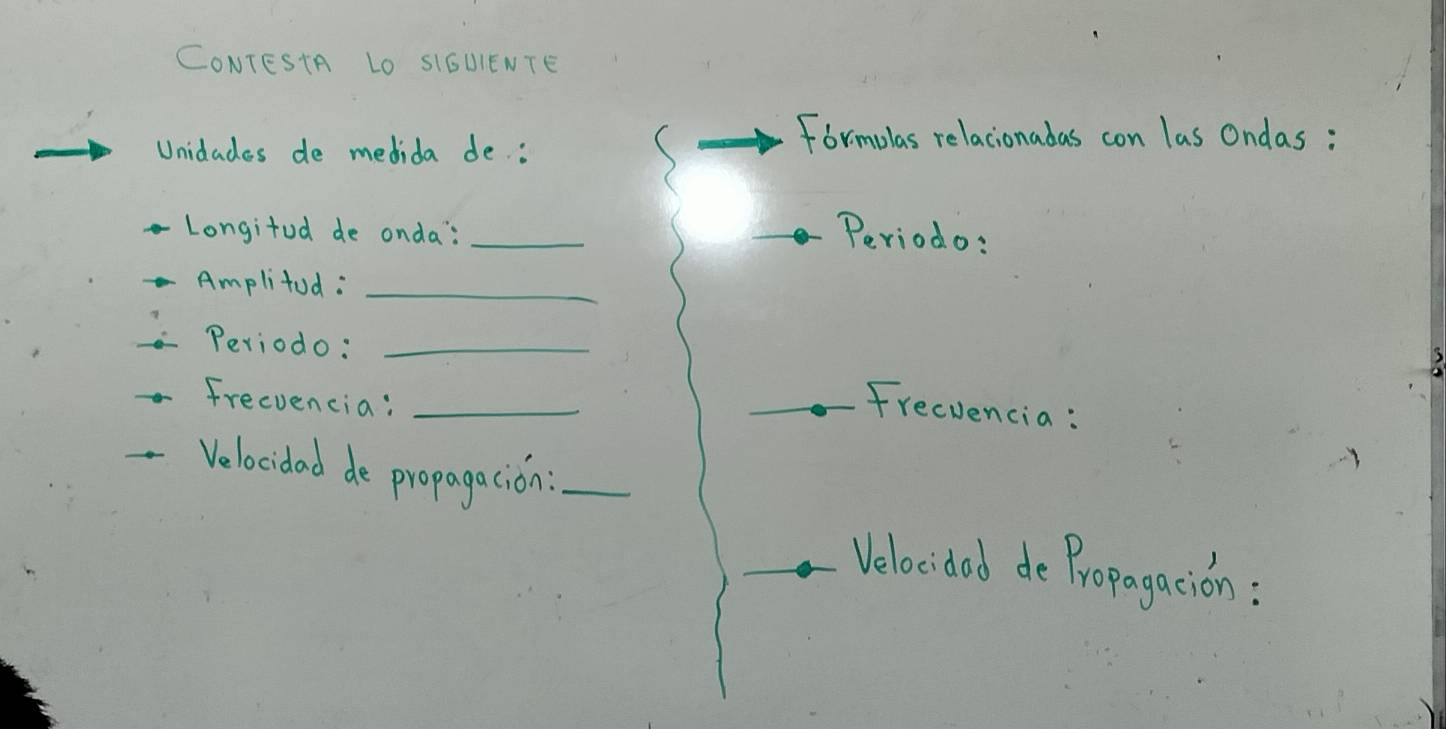 CONTESTA LO SIGUIENTE
Unidades de medida de :
Longitud de onda: ______
Amplitud: ______
Periodo: ______
Frecuencia: ______
Velocidad de propagación: ____
Fórmulas relacionadas con las Ondas :
Periodo:
Frecuencia:
Velocidad de Propagación: